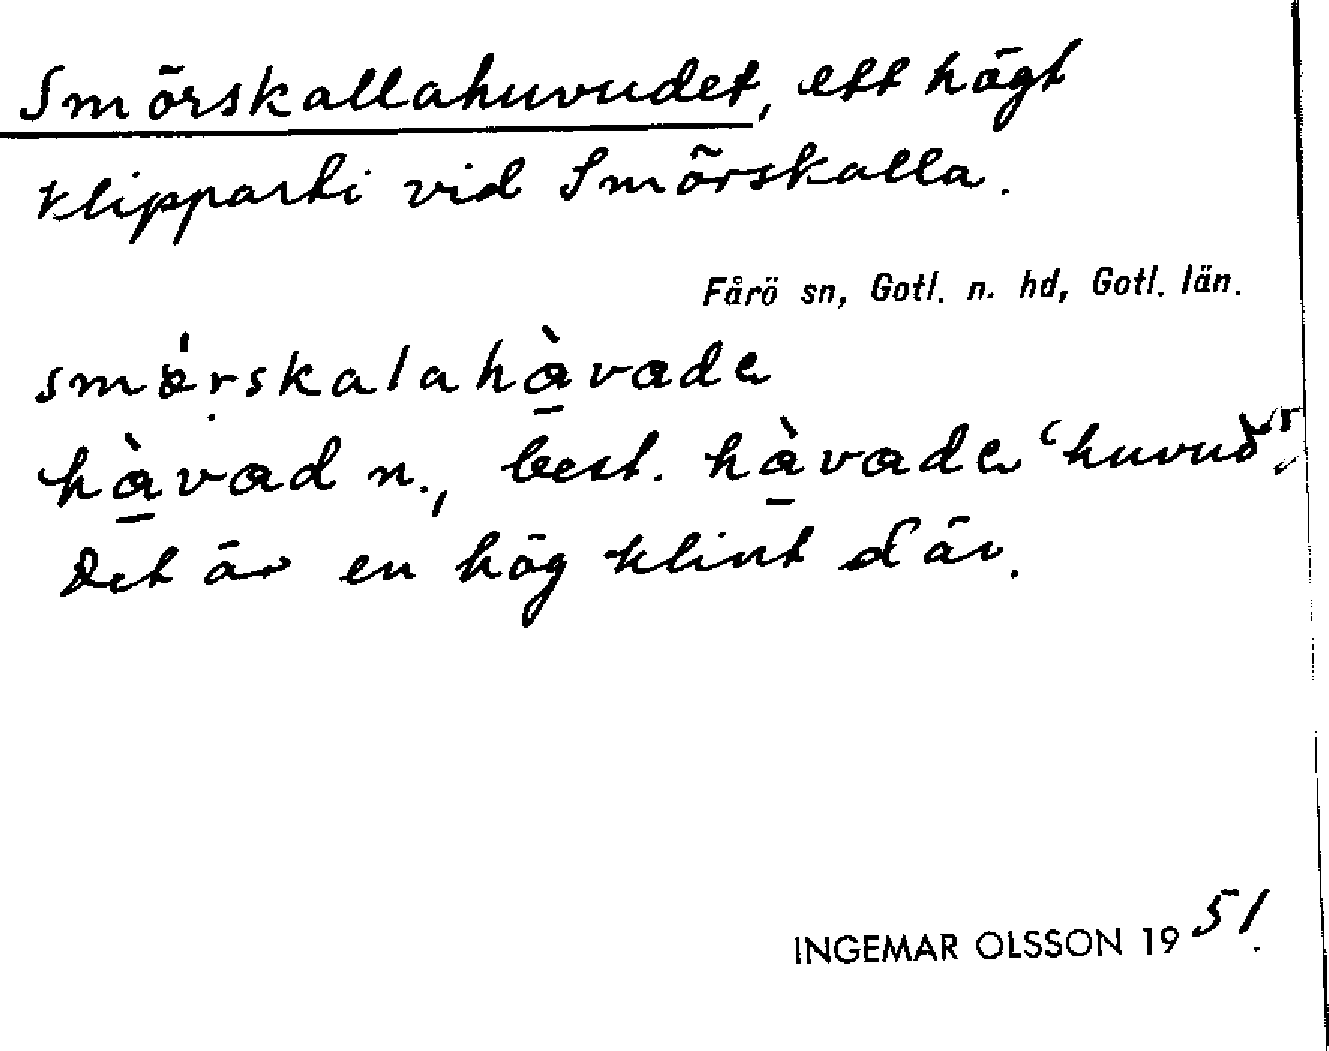 Smörskallahuvudet, ett högt
klipparti vid Smörskalla.
Fårö sn, Gotl. n. hd, Gotl. län.
smǿrskalahàvade
hàvad n., best. hàvade 'huvud'.
Det är en hög klint där.
INGEMAR OLSSON 1951.